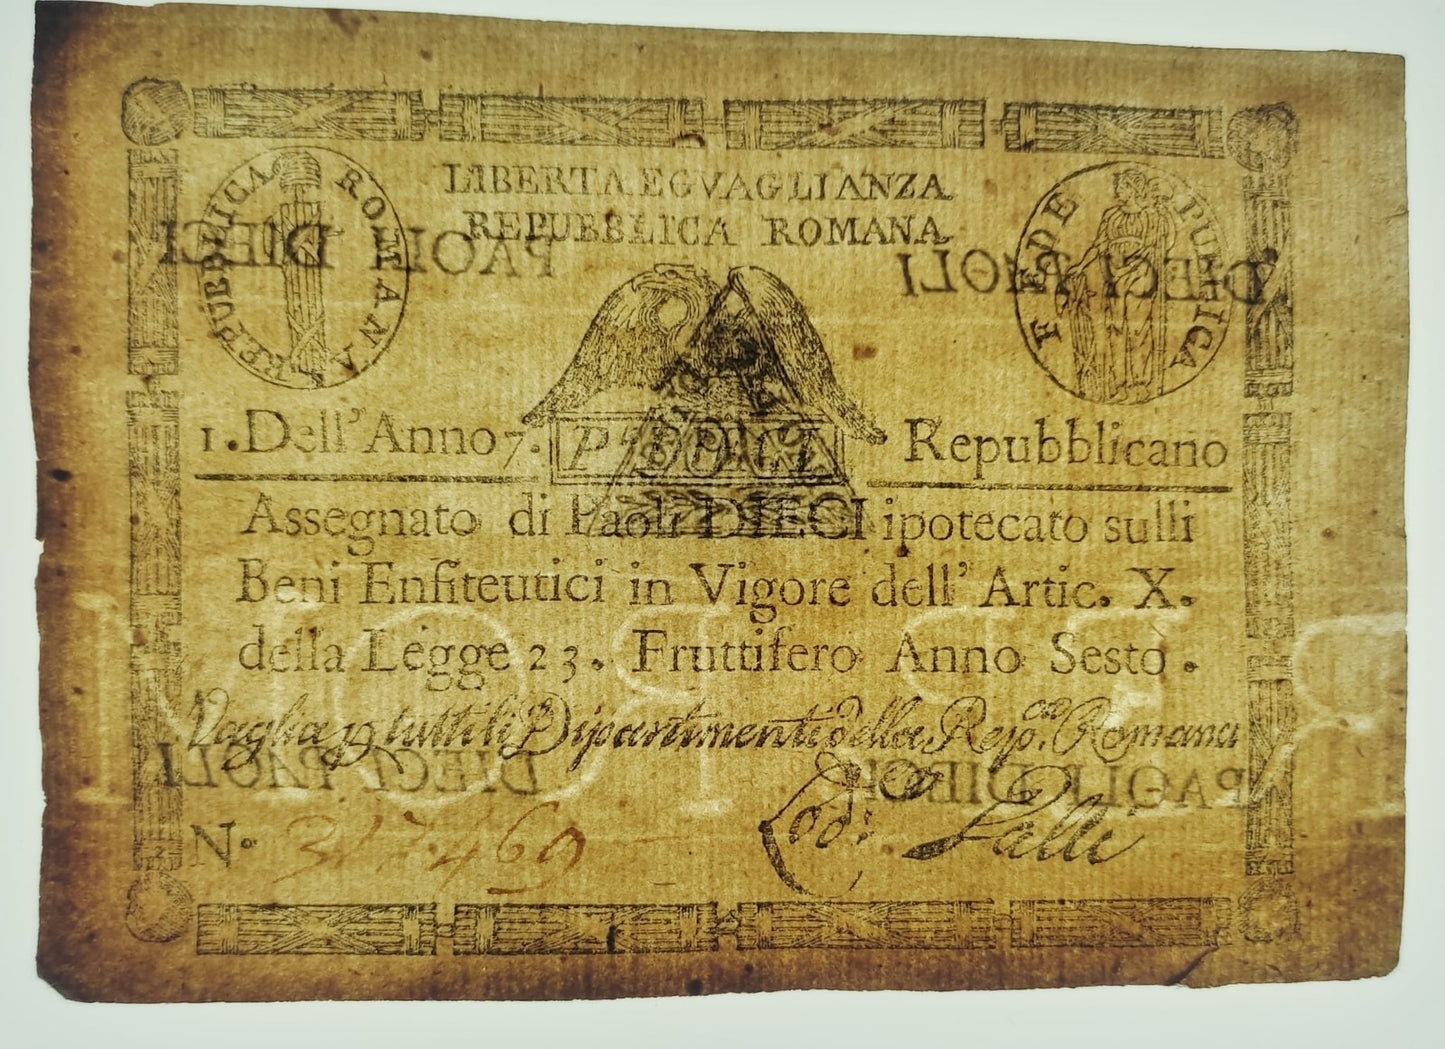 LIBERTA EGVAGLIANZA
REPUBBLICA ROMANA
REPUBBLICA ROMANA
FEDE PUBLICA
PAOLI DIECI
DIECI PAOLI
1. Dell' Anno 7.
Repubblicano
Assegnato di Paoli DIECI ipotecato sulli
Beni Enfiteutici in Vigore dell' Artic. X.
della Legge 23. Fruttifero Anno Sesto.
Vaglia p tutti li Dipartimenti della Rep. Romana
DIECI PAOLI
PAOLI DIECI
N.